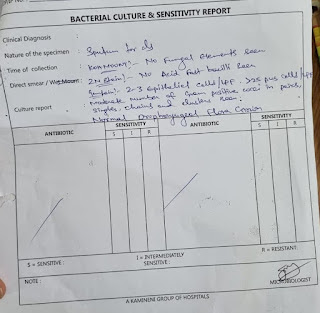 BACTERIAL CULTURE & SENSITIVITY REPORT
Clinical Diagnosis :
Nature of the specimen : Sputum for c/s
Time of collection : KOH MOUNT :- No Fungal Elements Seen
Direct smear / Wet Mount : ZN Stain :- No Acid Fast bacilli Seen
2-3 epithelial cells/LPF. >25 pus cells/LPF
moderate number of Gram positive cocci in pairs,
Culture report : singles, chains and clusters seen.
Normal Oropharyngeal Flora Grown
ANTIBIOTIC SENSITIVITY ANTIBIOTIC SENSITIVITY
S I R S I R
S = SENSITIVE : I = INTERMEDIATELY SENSITIVE : R = RESISTANT
NOTE : MICROBIOLOGIST
A KAMINENI GROUP OF HOSPITALS